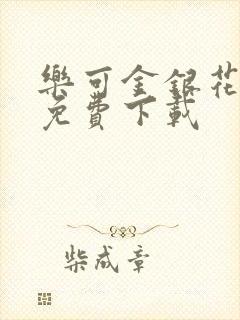 樂可金銀花
免費下載
柴成章